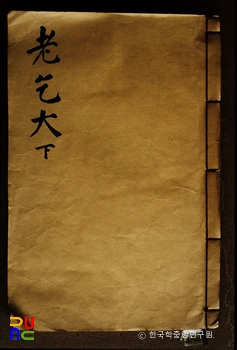 老乞大下
RUBC
© 한국학중앙연구원